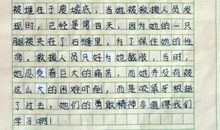 被埋在了废墟底，当她被救援人员发
现时，已经是第四天，因为她的一只
腿被夹在了石缝里，为了保住她的性
命，救援人员底好为她截肢，当时，
她忍受着巨大的痛苦，而她并没有被
这么大的困难吓倒，而是咬紧牙根挺
了过去，她们的勇敢精神多值得我们
学习啊！